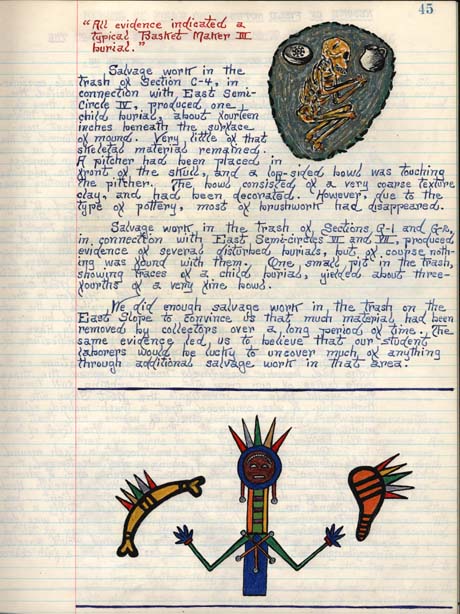 45
"All evidence indicated a
typical Basket Maker III
burial."
Salvage work in the
trash of Section C-4, in
connection with East Semi-
Circle IV, produced one
child burial, about fourteen
inches beneath the surface
of mound. Very little of that
skeletal material remained.
A pitcher had been placed in
front of the skull, and a lop-sided bowl was touching
the pitcher. The bowl consisted of a very coarse texture
clay, and had been decorated. However, due to the
type of pottery, most of brushwork had disappeared.
Salvage work in the trash of Sections G-1 and
in connection with East Semi-circles VI and VII, produced
evidence of several disturbed burials, but of course noth-
ing was found with them. One small pit in the trash,
showing traces of a child burial, yielded about three-
fourths of a very fine bowl.
We did enough salvage work in the trash on the
East Slope to convince us that much material had been
removed by collectors over a long period of time. The
same evidence led us to believe that our student
laborers would be lucky to uncover much of anything
through additional salvage work in that area.